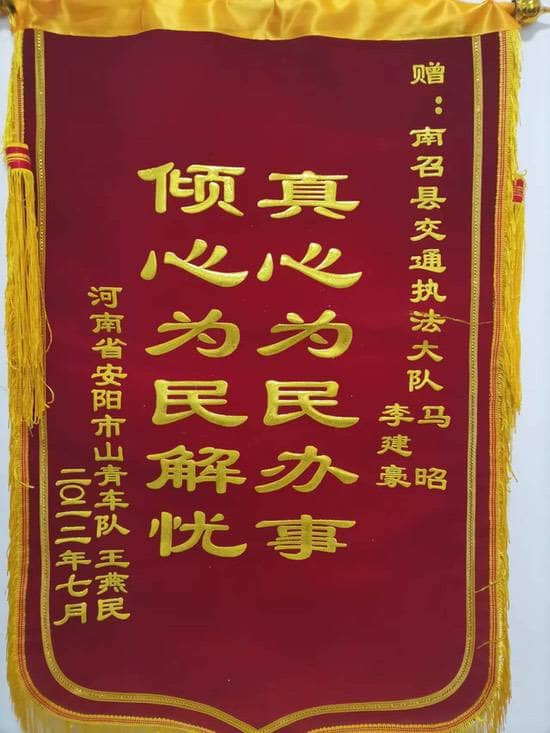 赠：南召县交通执法大队马昭
李建豪
真心为民办事
倾心为民解忧
河南省安阳市山青车队王燕民
二〇二二年七月